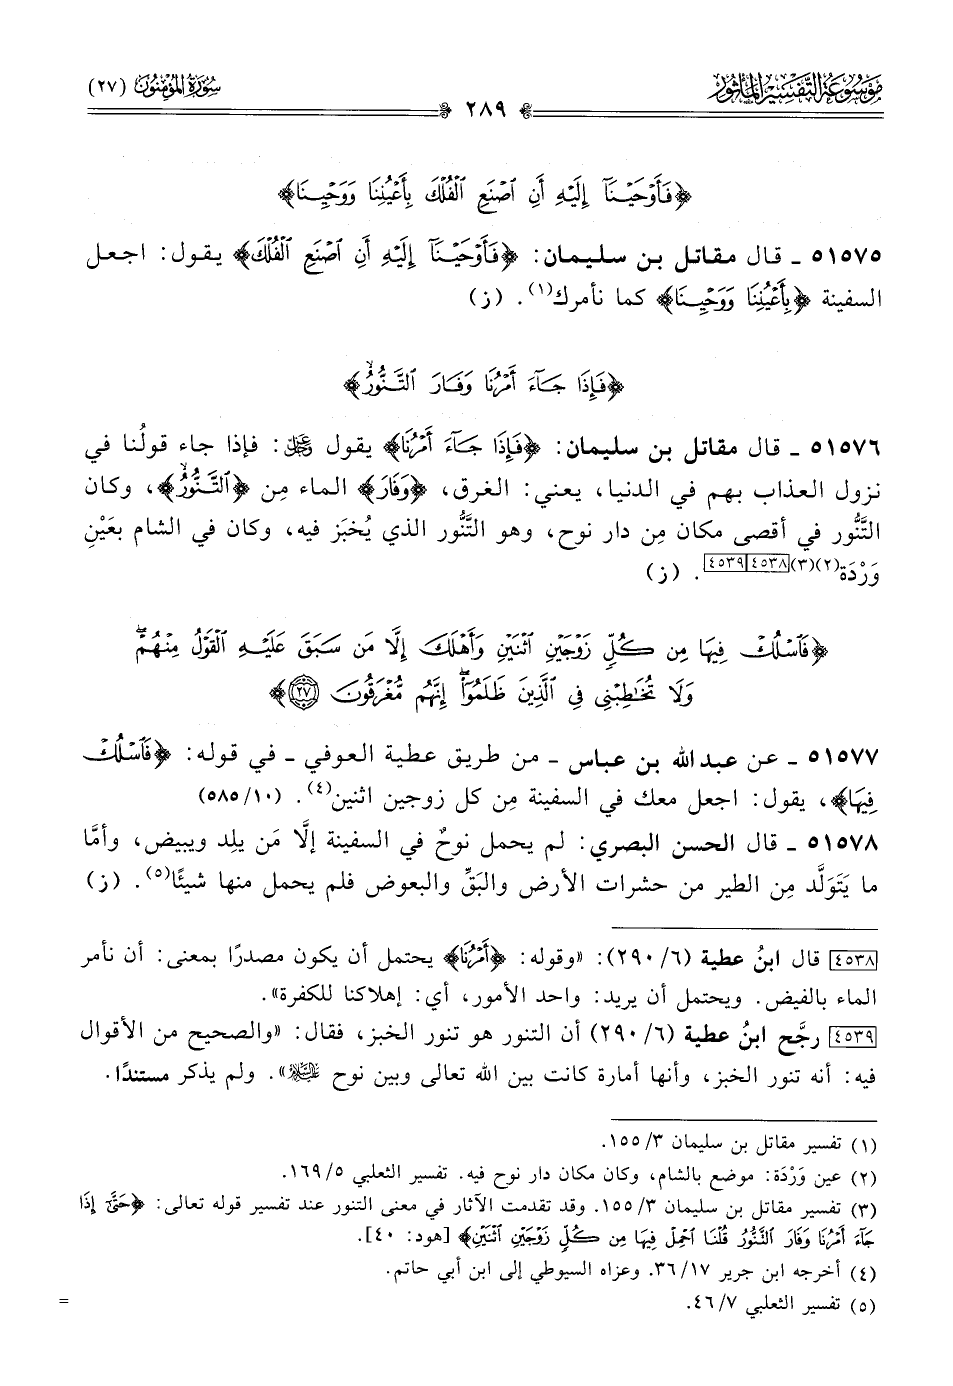 مَوْسُوعَة التَّفْسِير المَأْثُور
سُورَةُ المُؤْمِنُون (٢٧)
٢٨٩
﴿فَأَوْحَيْنَآ إِلَيْهِ أَنِ ٱصْنَعِ ٱلْفُلْكَ بِأَعْيُنِنَا وَوَحْيِنَا﴾
٥١٥٧٥ ـ قال مقاتل بن سليمان: ﴿فَأَوْحَيْنَآ إِلَيْهِ أَنِ ٱصْنَعِ ٱلْفُلْكَ﴾ يقول: اجعل
السفينة ﴿بِأَعْيُنِنَا وَوَحْيِنَا﴾ كما نأمرك(١). (ز)
﴿فَإِذَا جَآءَ أَمْرُنَا وَفَارَ ٱلتَّنُّورُۙ﴾
٥١٥٧٦ ـ قال مقاتل بن سليمان: ﴿فَإِذَا جَآءَ أَمْرُنَا﴾ يقول عز وجل: فإذا جاء قولُنا في
نزول العذاب بهم في الدنيا، يعني: الغرق، ﴿وَفَارَ﴾ الماء مِن ﴿ٱلتَّنُّورُۙ﴾، وكان
التَّنُّور في أقصى مكان مِن دار نوح، وهو التَّنُّور الذي يُخبَز فيه، وكان في الشام بعَيْنِ
وَرْدَة(٢)(٣) ٤٥٣٨ ٤٥٣٩. (ز)
﴿فَٱسْلُكْ فِيهَا مِن كُلٍّ زَوْجَيْنِ ٱثْنَيْنِ وَأَهْلَكَ إِلَّا مَن سَبَقَ عَلَيْهِ ٱلْقَوْلُ مِنْهُمْۖ
وَلَا تُخَٰطِبْنِى فِى ٱلَّذِينَ ظَلَمُوٓا۟ۖ إِنَّهُم مُّغْرَقُونَ ٢٧﴾
٥١٥٧٧ ـ عن عبد الله بن عباس ـ من طريق عطية العوفي ـ في قوله: ﴿فَٱسْلُكْ
فِيهَا﴾، يقول: اجعل معك في السفينة مِن كل زوجين اثنين(٤). (١٠/ ٥٨٥)
٥١٥٧٨ ـ قال الحسن البصري: لم يحمل نوحٌ في السفينة إلَّا مَن يلِد ويبيض، وأمَّا
ما يَتَوَلَّد مِن الطير من حشرات الأرض والبَقِّ والبعوض فلم يحمل منها شيئًا(٥). (ز)
٤٥٣٨ قال ابنُ عطية (٦/ ٢٩٠): «وقوله: ﴿أَمْرُنَا﴾ يحتمل أن يكون مصدرًا بمعنى: أن نأمر
الماء بالفيض. ويحتمل أن يريد: واحد الأمور، أي: إهلاكنا للكفرة».
٤٥٣٩ رجَّح ابنُ عطية (٦/ ٢٩٠) أن التنور هو تنور الخبز، فقال: «والصحيح من الأقوال
فيه: أنه تنور الخبز، وأنها أمارة كانت بين الله تعالى وبين نوح عليه السلام». ولم يذكر مستندًا.
(١) تفسير مقاتل بن سليمان ٣/ ١٥٥.
(٢) عين وَرْدَة: موضع بالشام، وكان مكان دار نوح فيه. تفسير الثعلبي ٥/ ١٦٩.
(٣) تفسير مقاتل بن سليمان ٣/ ١٥٥. وقد تقدمت الآثار في معنى التنور عند تفسير قوله تعالى: ﴿حَتَّىٰٓ إِذَا
جَآءَ أَمْرُنَا وَفَارَ ٱلتَّنُّورُ قُلْنَا ٱحْمِلْ فِيهَا مِن كُلٍّ زَوْجَيْنِ ٱثْنَيْنِ﴾ [هود: ٤٠].
(٤) أخرجه ابن جرير ١٧/ ٣٦. وعزاه السيوطي إلى ابن أبي حاتم.
(٥) تفسير الثعلبي ٧/ ٤٦.
=